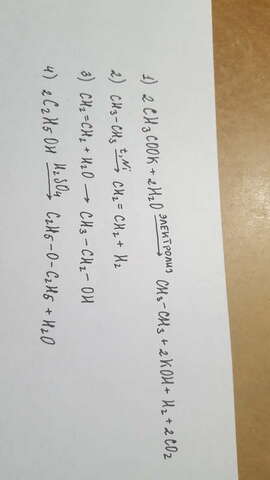 1) 2CH3COOK + 2H2O электролиз → CH3-CH3 + 2KOH + H2 + 2CO2
2) CH3-CH3 t, Ni → CH2=CH2 + H2
3) CH2=CH2 + H2O → CH3-CH2-OH
4) 2C2H5OH H2SO4 → C2H5-O-C2H5 + H2O